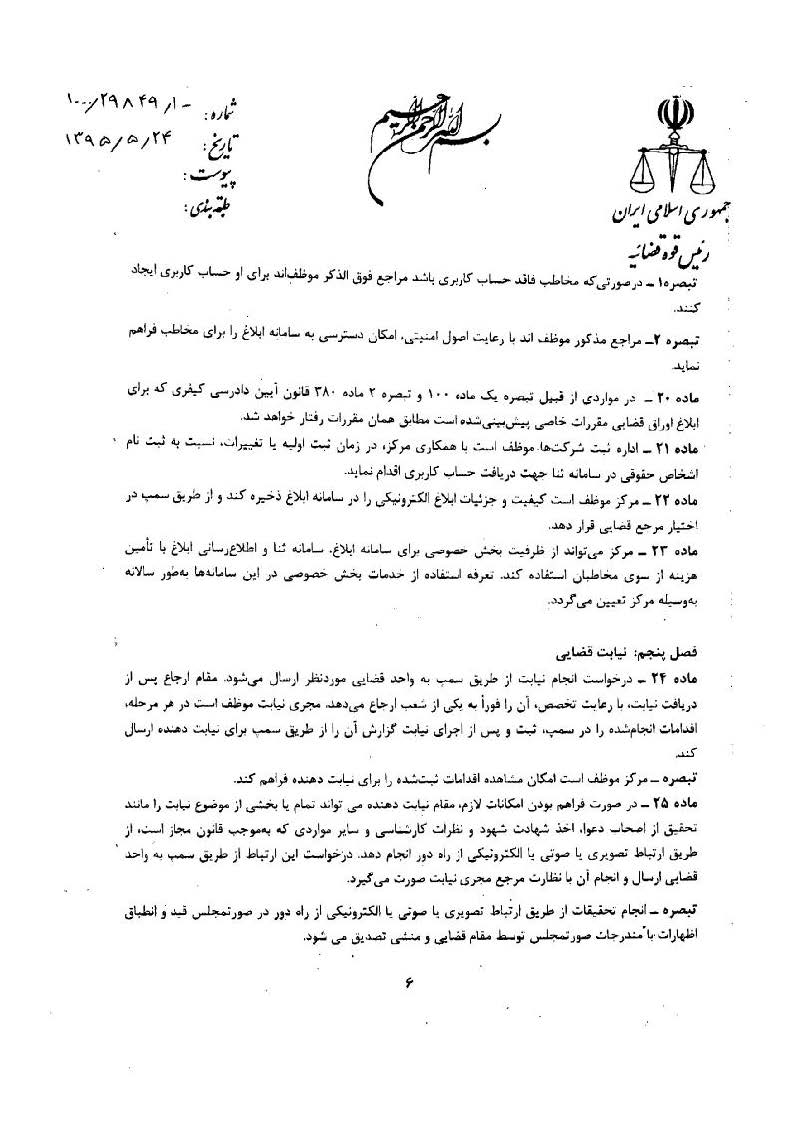 بسم الله الرحمن الرحیم
شماره: ۱۰۰/۲۹۸۴۹/۱-
تاریخ: ۱۳۹۵/۵/۲۴
پیوست:
طبقه‌بندی:
جمهوری اسلامی ایران
رئیس قوه قضائیه
تبصره۱ ـ درصورتی‌که مخاطب فاقد حساب کاربری باشد مراجع فوق الذکر موظف‌اند برای او حساب کاربری ایجاد
کنند.
تبصره ۲ـ مراجع مذکور موظف اند با رعایت اصول امنیتی، امکان دسترسی به سامانه ابلاغ را برای مخاطب فراهم
نماید.
ماده ۲۰ ـ در مواردی از قبیل تبصره یک ماده ۱۰۰ و تبصره ۲ ماده ۳۸۰ قانون آیین دادرسی کیفری که برای
ابلاغ اوراق قضایی مقررات خاصی پیش‌بینی‌شده است مطابق همان مقررات رفتار خواهد شد.
ماده ۲۱ ـ اداره ثبت شرکت‌ها موظف است با همکاری مرکز، در زمان ثبت اولیه یا تغییرات، نسبت به ثبت نام
اشخاص حقوقی در سامانه ثنا جهت دریافت حساب کاربری اقدام نماید.
ماده ۲۲ ـ مرکز موظف است کیفیت و جزئیات ابلاغ الکترونیکی را در سامانه ابلاغ ذخیره کند و از طریق سمپ در
اختیار مرجع قضایی قرار دهد.
ماده ۲۳ ـ مرکز می‌تواند از ظرفیت بخش خصوصی برای سامانه ابلاغ، سامانه ثنا و اطلاع‌رسانی ابلاغ با تأمین
هزینه از سوی مخاطبان استفاده کند. تعرفه استفاده از خدمات بخش خصوصی در این سامانه‌ها به‌طور سالانه
به‌وسیله مرکز تعیین می‌گردد.
فصل پنجم: نیابت قضایی
ماده ۲۴ ـ درخواست انجام نیابت از طریق سمپ به واحد قضایی موردنظر ارسال می‌شود. مقام ارجاع پس از
دریافت نیابت، با رعایت تخصص، آن را فوراً به یکی از شعب ارجاع می‌دهد. مجری نیابت موظف است در هر مرحله،
اقدامات انجام‌شده را در سمپ، ثبت و پس از اجرای نیابت گزارش آن را از طریق سمپ برای نیابت دهنده ارسال
کند.
تبصره ـ مرکز موظف است امکان مشاهده اقدامات ثبت‌شده را برای نیابت دهنده فراهم کند.
ماده ۲۵ ـ در صورت فراهم بودن امکانات لازم، مقام نیابت دهنده می تواند تمام یا بخشی از موضوع نیابت را مانند
تحقیق از اصحاب دعوا، اخذ شهادت شهود و نظرات کارشناسی و سایر مواردی که به‌موجب قانون مجاز است، از
طریق ارتباط تصویری یا صوتی یا الکترونیکی از راه دور انجام دهد. درخواست این ارتباط از طریق سمپ به واحد
قضایی ارسال و انجام آن با نظارت مرجع مجری نیابت صورت می‌گیرد.
تبصره ـ انجام تحقیقات از طریق ارتباط تصویری یا صوتی یا الکترونیکی از راه دور در صورتمجلس قید و انطباق
اظهارات با مندرجات صورتمجلس توسط مقام قضایی و منشی تصدیق می شود.
۶